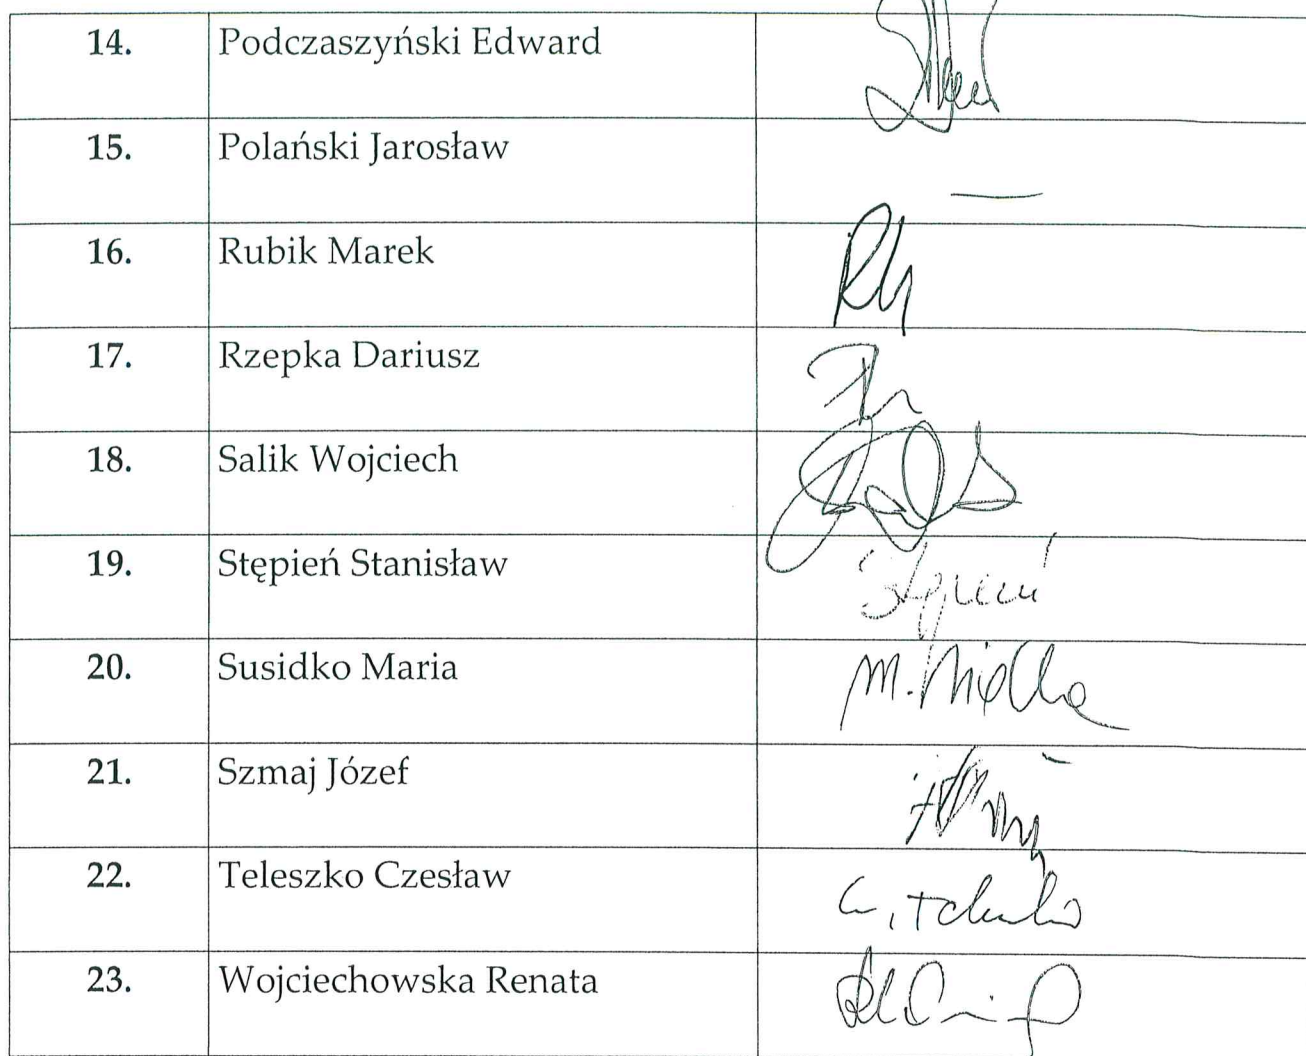 14. Podczaszyński Edward
15. Polański Jarosław —
16. Rubik Marek
17. Rzepka Dariusz
18. Salik Wojciech
19. Stępień Stanisław Stępień
20. Susidko Maria
21. Szmaj Józef
22. Teleszko Czesław
23. Wojciechowska Renata